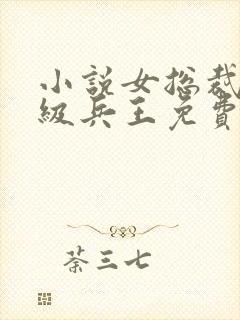 小說女总裁
級兵王免費
荼三七